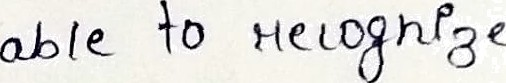 able to recognize